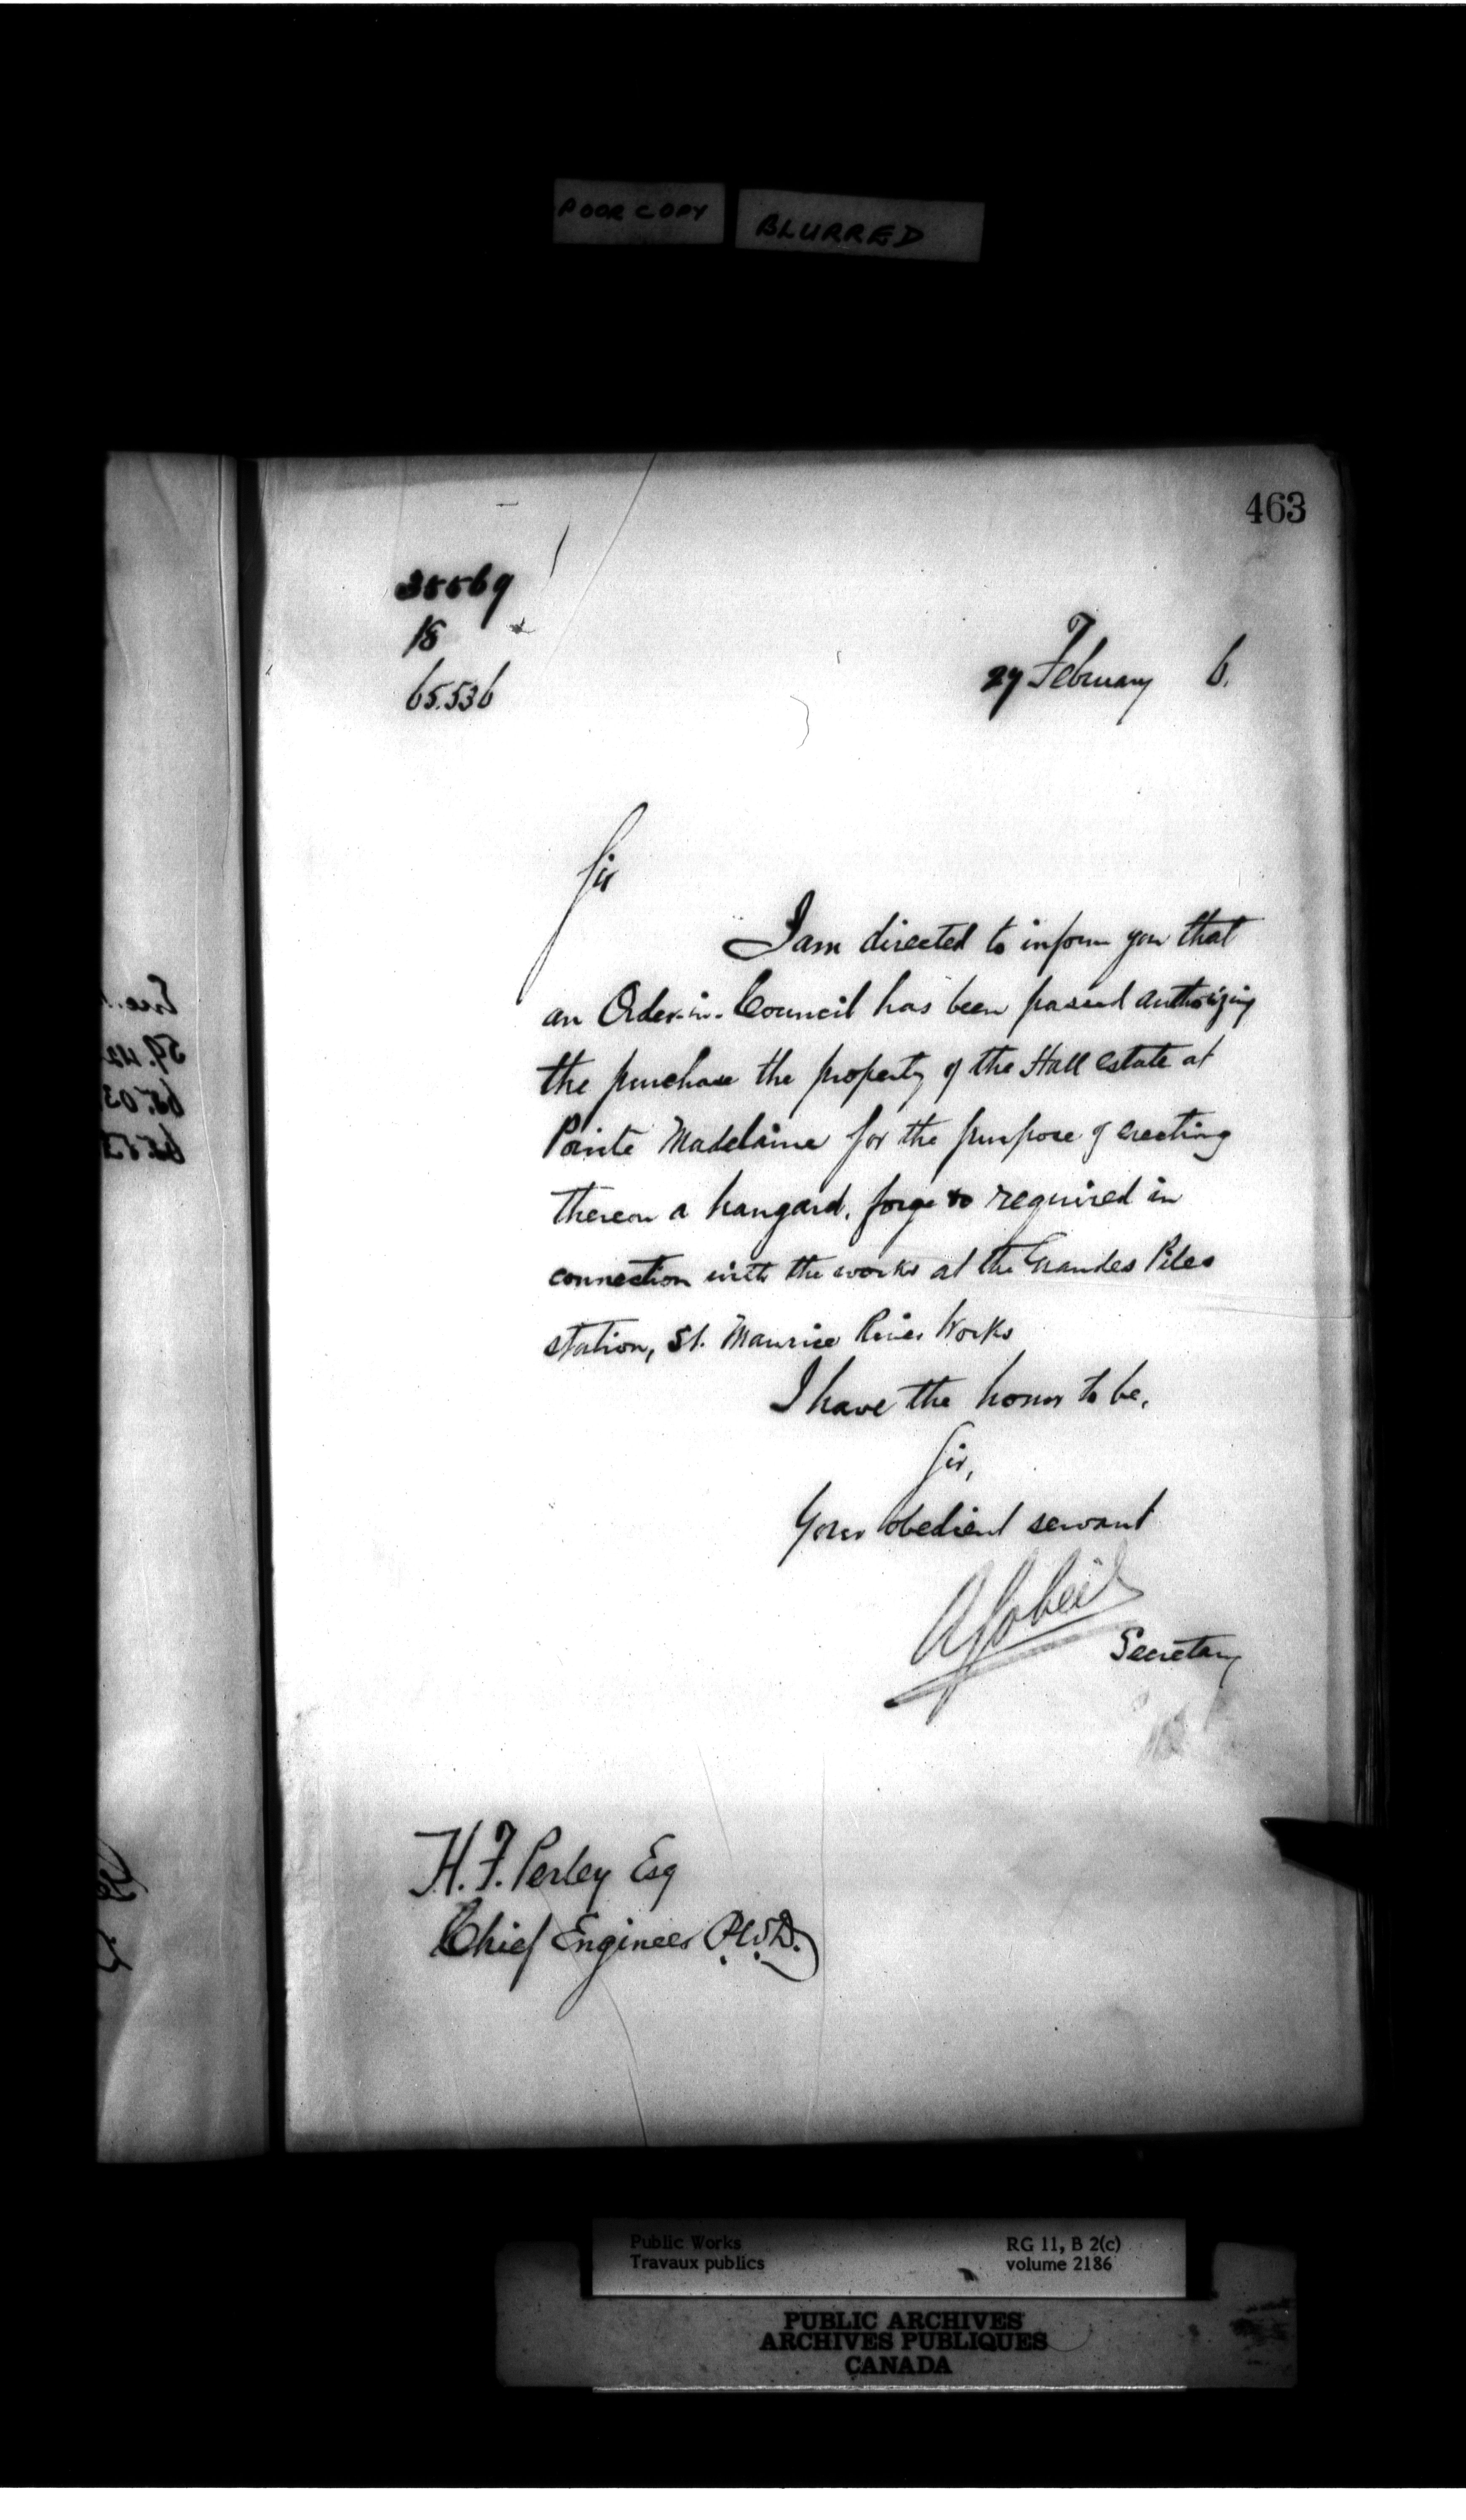 POOR COPY BLURRED
463
35569
18
65.536
27 February 6.
Sir
I am directed to inform you that
an Order-in-Council has been passed authorizing
the purchase the property of the Hall estate at
Pointe Madelaine for the purpose of erecting
thereon a hangard, forge &c required in
connection with the works at the Grandes Piles
station, St. Maurice River Works
I have the honor to be,
Sir,
Your obedient servant
A Gobeil
Secretary
H. F. Perley Esq
Chief Engineer P.W.D.
Public Works
Travaux publics
RG 11, B 2(c)
volume 2186
PUBLIC ARCHIVES
ARCHIVES PUBLIQUES
CANADA